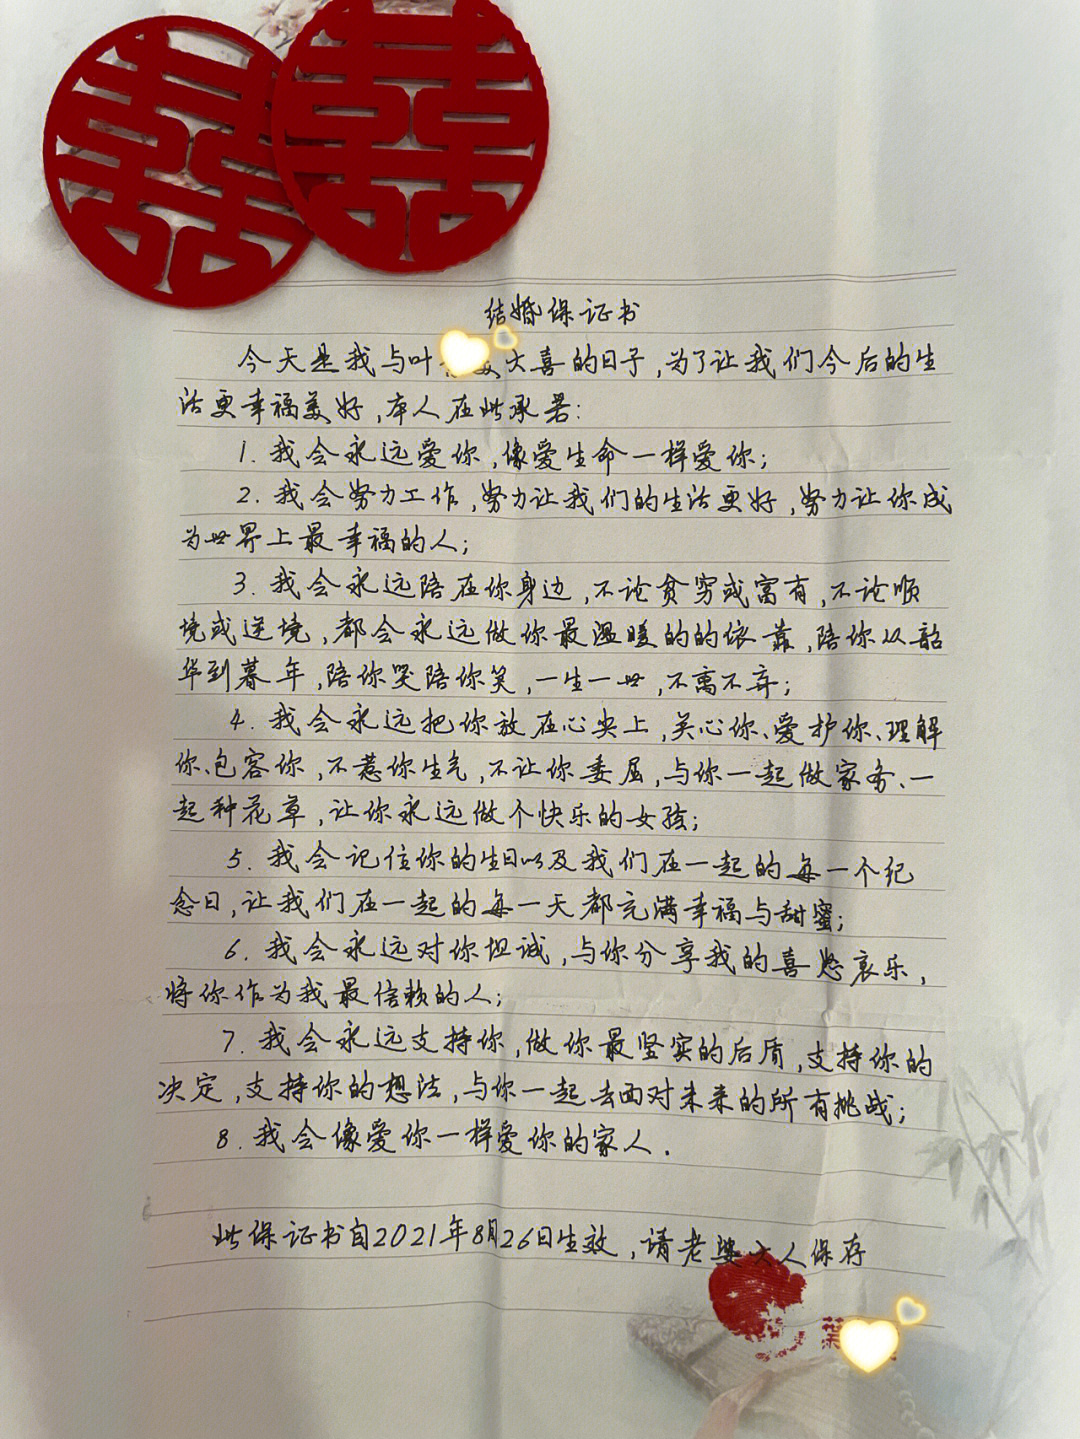 囍 囍
结婚保证书
今天是我与叶 大喜的日子,为了让我们今后的生
活更幸福美好,本人在此承若:
1.我会永远爱你,像爱生命一样爱你;
2.我会努力工作,努力让我们的生活更好,努力让你成
为世界上最幸福的人;
3.我会永远陪在你身边,不论贫穷或富有,不论顺
境或逆境,都会永远做你最温暖的的依靠,陪你从韶
华到暮年,陪你哭陪你笑,一生一世,不离不弃;
4.我会永远把你放在心尖上,关心你、爱护你、理解
你、包容你,不惹你生气,不让你委屈,与你一起做家务、一
起种花草,让你永远做个快乐的女孩;
5.我会记住你的生日以及我们在一起的每一个纪
念日,让我们在一起的每一天都充满幸福与甜蜜;
6.我会永远对你坦诚,与你分享我的喜怒哀乐,
将你作为我最信赖的人;
7.我会永远支持你,做你最坚实的后盾,支持你的
决定,支持你的想法,与你一起去面对未来的所有挑战;
8.我会像爱你一样爱你的家人.
此保证书自2021年8月26日生效,请老婆大人保存